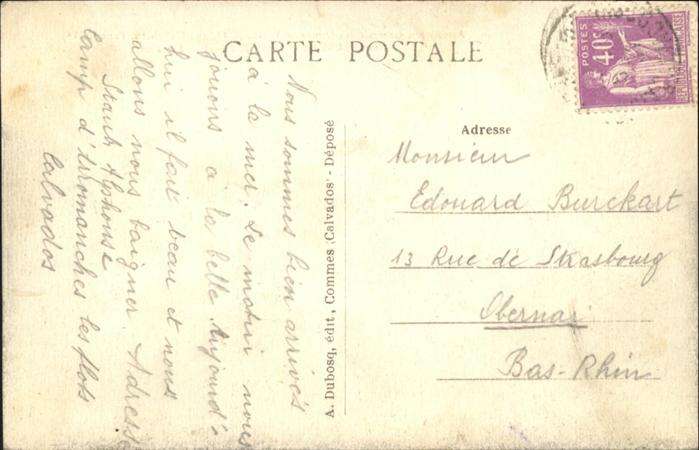 CARTE POSTALE
Nous sommes bien arrivés
à la mer. Le matin nous
jouons à la belle Aujourd'
hui il fait beau et nous
allons nous baigner Adresse
Staub Alphonse
Camp d'Arromanches les flots
Calvados
A. Dubosq, édit., Commes (Calvados) - Déposé
POSTES
40c
Adresse
Monsieur
Edouard Burckart
13 Rue de Strasbourg
Obernai
Bas-Rhin